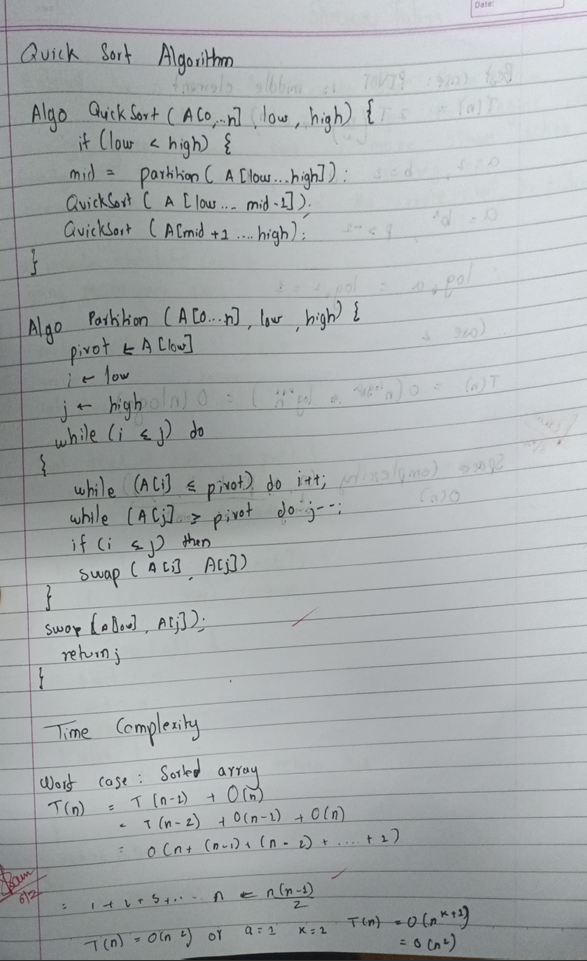 Date:
Quick Sort Algorithm
Algo QuickSort ( A[0,..n] , low, high) {
if (low < high) {
mid = partition ( A [low...high]);
QuickSort ( A [low... mid-1]).
QuickSort (A[mid +1 ....high);
}
Algo Partition (A[0...n], low, high) {
pivot ← A[low]
i ← low
j ← high
while (i ≤ j) do
{
while (A[i] ≤ pivot) do i++;
while (A[j] ≥ pivot do j--;
if (i ≤ j) then
swap ( A[i], A[j])
}
swap [A[low], A[j]);
return j
}
Time Complexity
Worst case: Sorted array
T(n) = T(n-1) + O(n)
= T(n-2) + O(n-1) + O(n)
= O(n+ (n-1)+ (n-2) + ... + 1)
= 1+2+3+... n ← n(n-1)/2
T(n) = O(n²) or a=1 k=1 T(n) = O(n^k+1)
= O(n²)